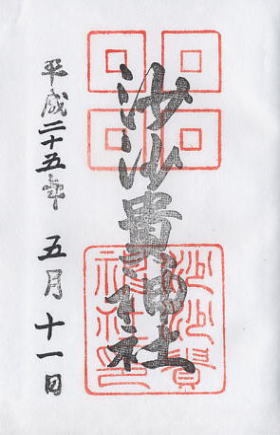 沙沙貴神社
平成二十五年 五月十一日
沙沙貴
神社印